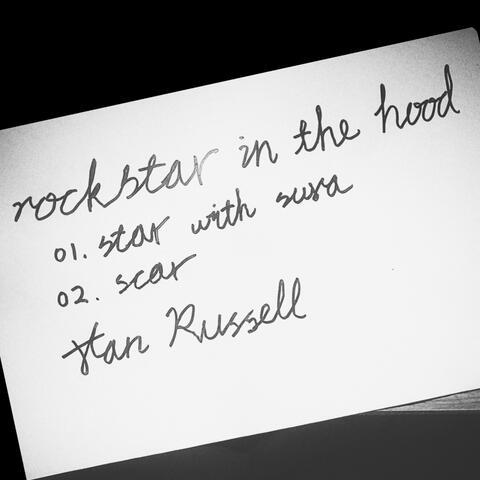 rockstar in the hood
01. star with susa
02. scar
Stan Russell